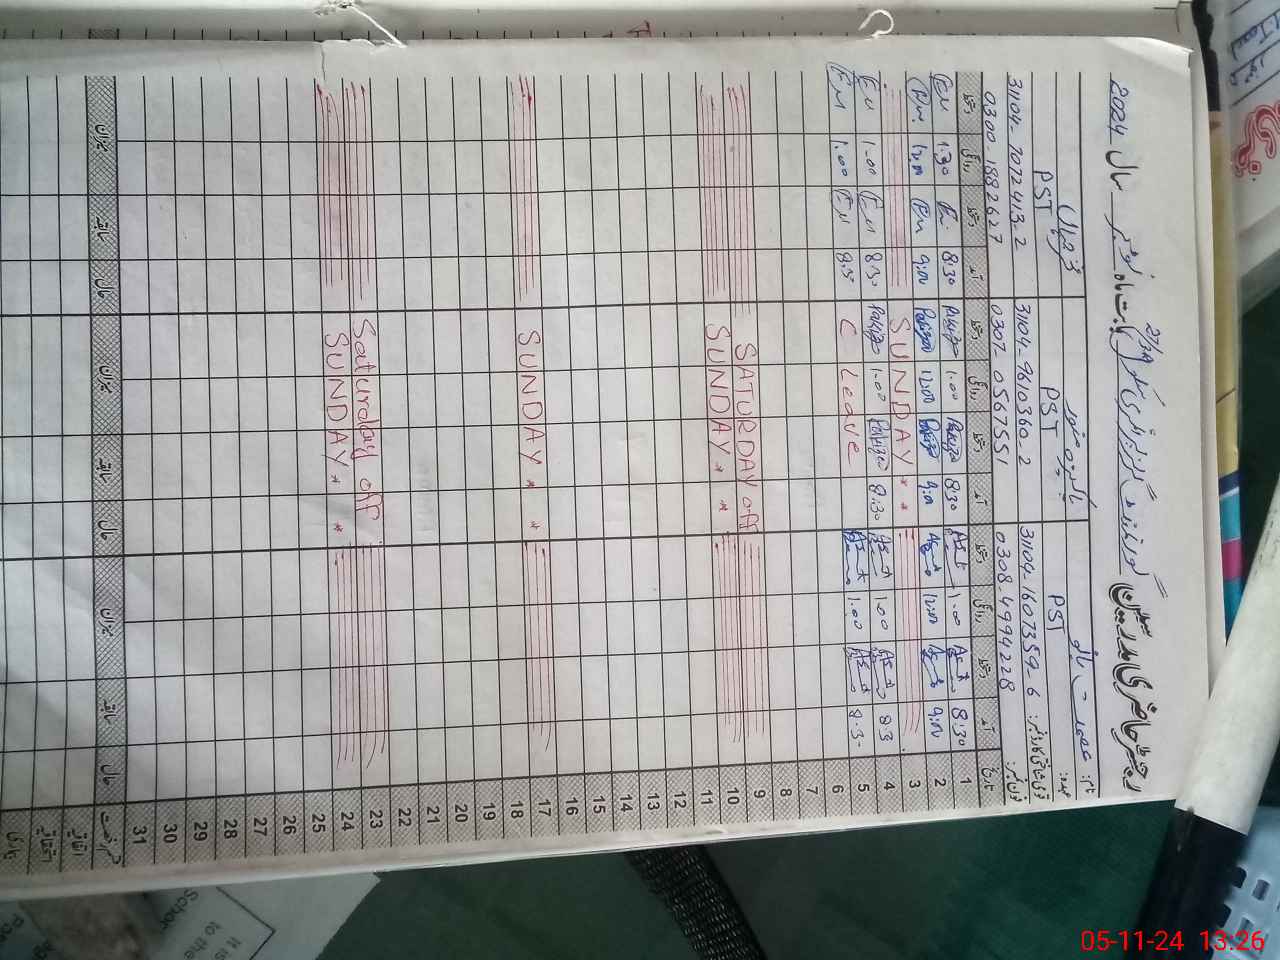 رجسٹر حاضری مدرسین گورنمنٹ گرلز پرائمری سکول بابت ماہ نومبر سال 2024
نام: عصمت بانو پاکیزہ منظور
عہدہ: PST PST PST
قومی شناختی کارڈ نمبر: 31104-1607359-6 31104-9610360-2 31104-7072413-2
فون نمبر: 0308-4994228 0307-0567551 0300-1882627
تاریخ آمد دستخط روانگی دستخط آمد دستخط روانگی دستخط آمد دستخط روانگی دستخط
1 8:30 1.00 8:30 Pakiza 1.00 Pakiza 8:30 1.30
2 9:00 12:00 9:00 Pakiza 12:00 Pakiza 9:00
3 SUNDAY * *
4 8.3 1.00 8:30 Pakiza 1.00 Pakiza 8.30 1.00
5 8.3 1.00 C Leave 8.3 1.00
6
7
8
9 SATURDAY off
10 SUNDAY * *
11
12
13
14
15
16
17 SUNDAY * *
18
19
20
21
22
23 Saturday off
24 SUNDAY * *
25
26
27
28
29
30
31
قسم رخصت حال سابقہ میزان حال سابقہ میزان حال سابقہ میزان
اتفاقیہ
استحقاقیہ
بیماری
It is
to the
Schor
05-11-24 13:26